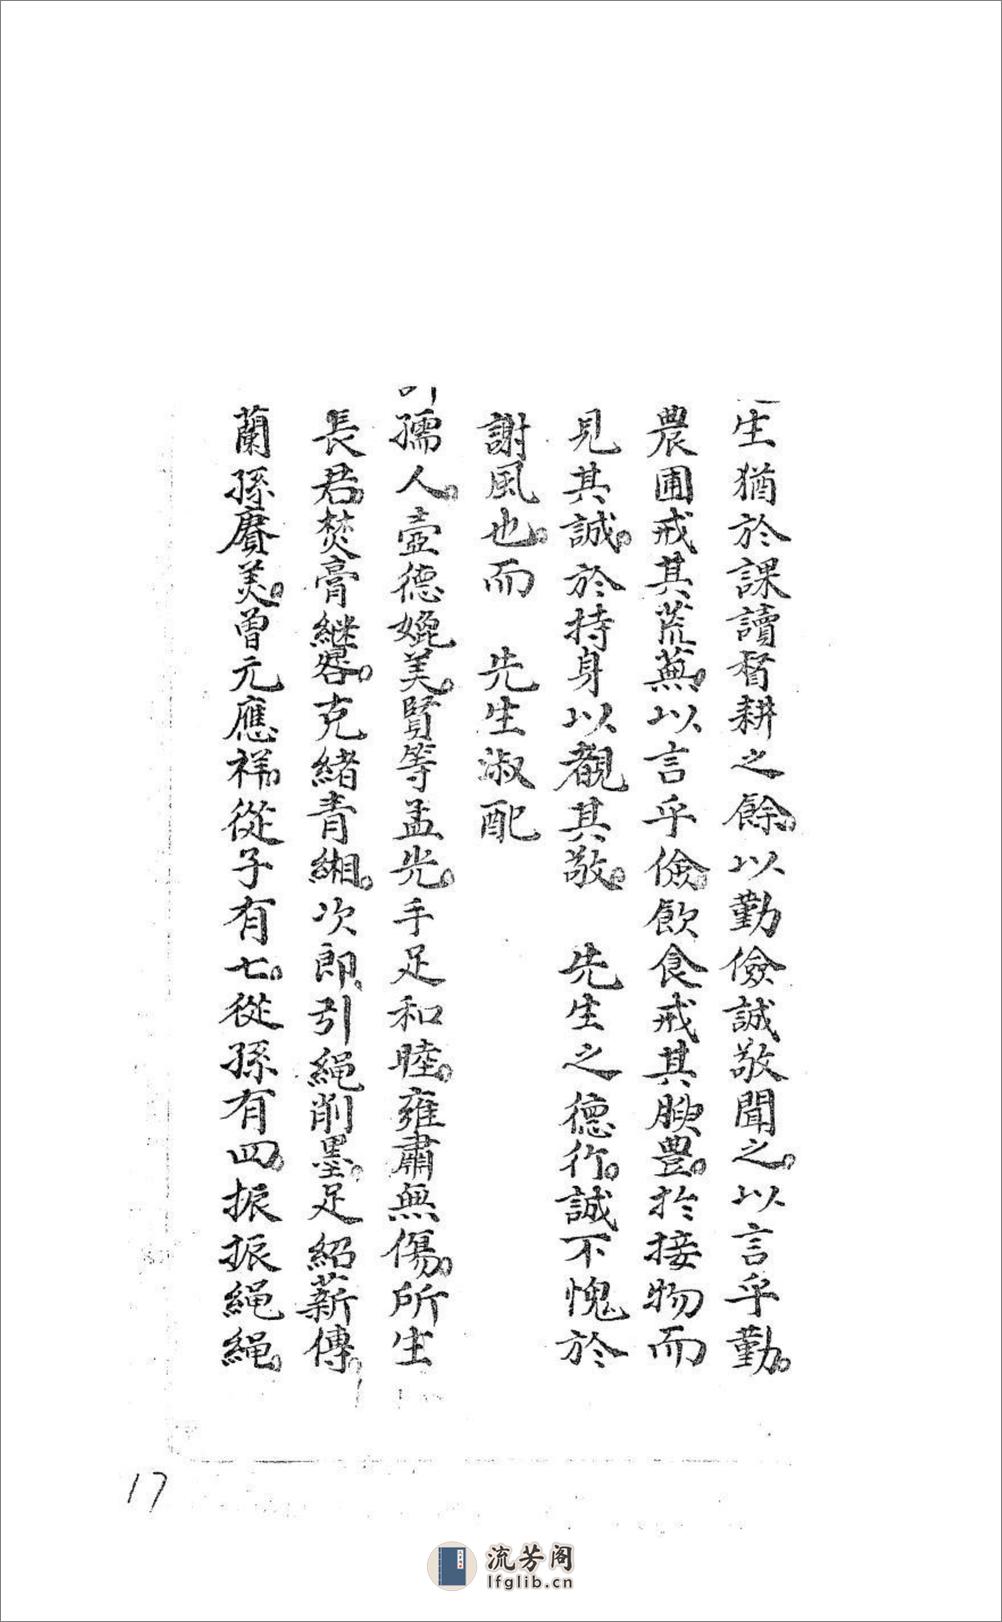 生猶於課讀督耕之餘。以勤儉誠敬聞之。以言乎勤。
農圃戒其荒蕪。以言乎儉。飲食戒其腴豊。於接物而
見其誠。於持身以觀其敬。　先生之德行。誠不愧於
謝風也。而　先生淑配
孺人。壼德媲美。賢等孟光。手足和睦。雍肅無傷。所生
長君。焚膏繼晷。克緒青緗。次郎引繩削墨。足紹薪傳。
蘭孫賡美。曾元應祥。從子有七。從孫有四。振振繩繩。
17
流芳阁
lfglib.cn